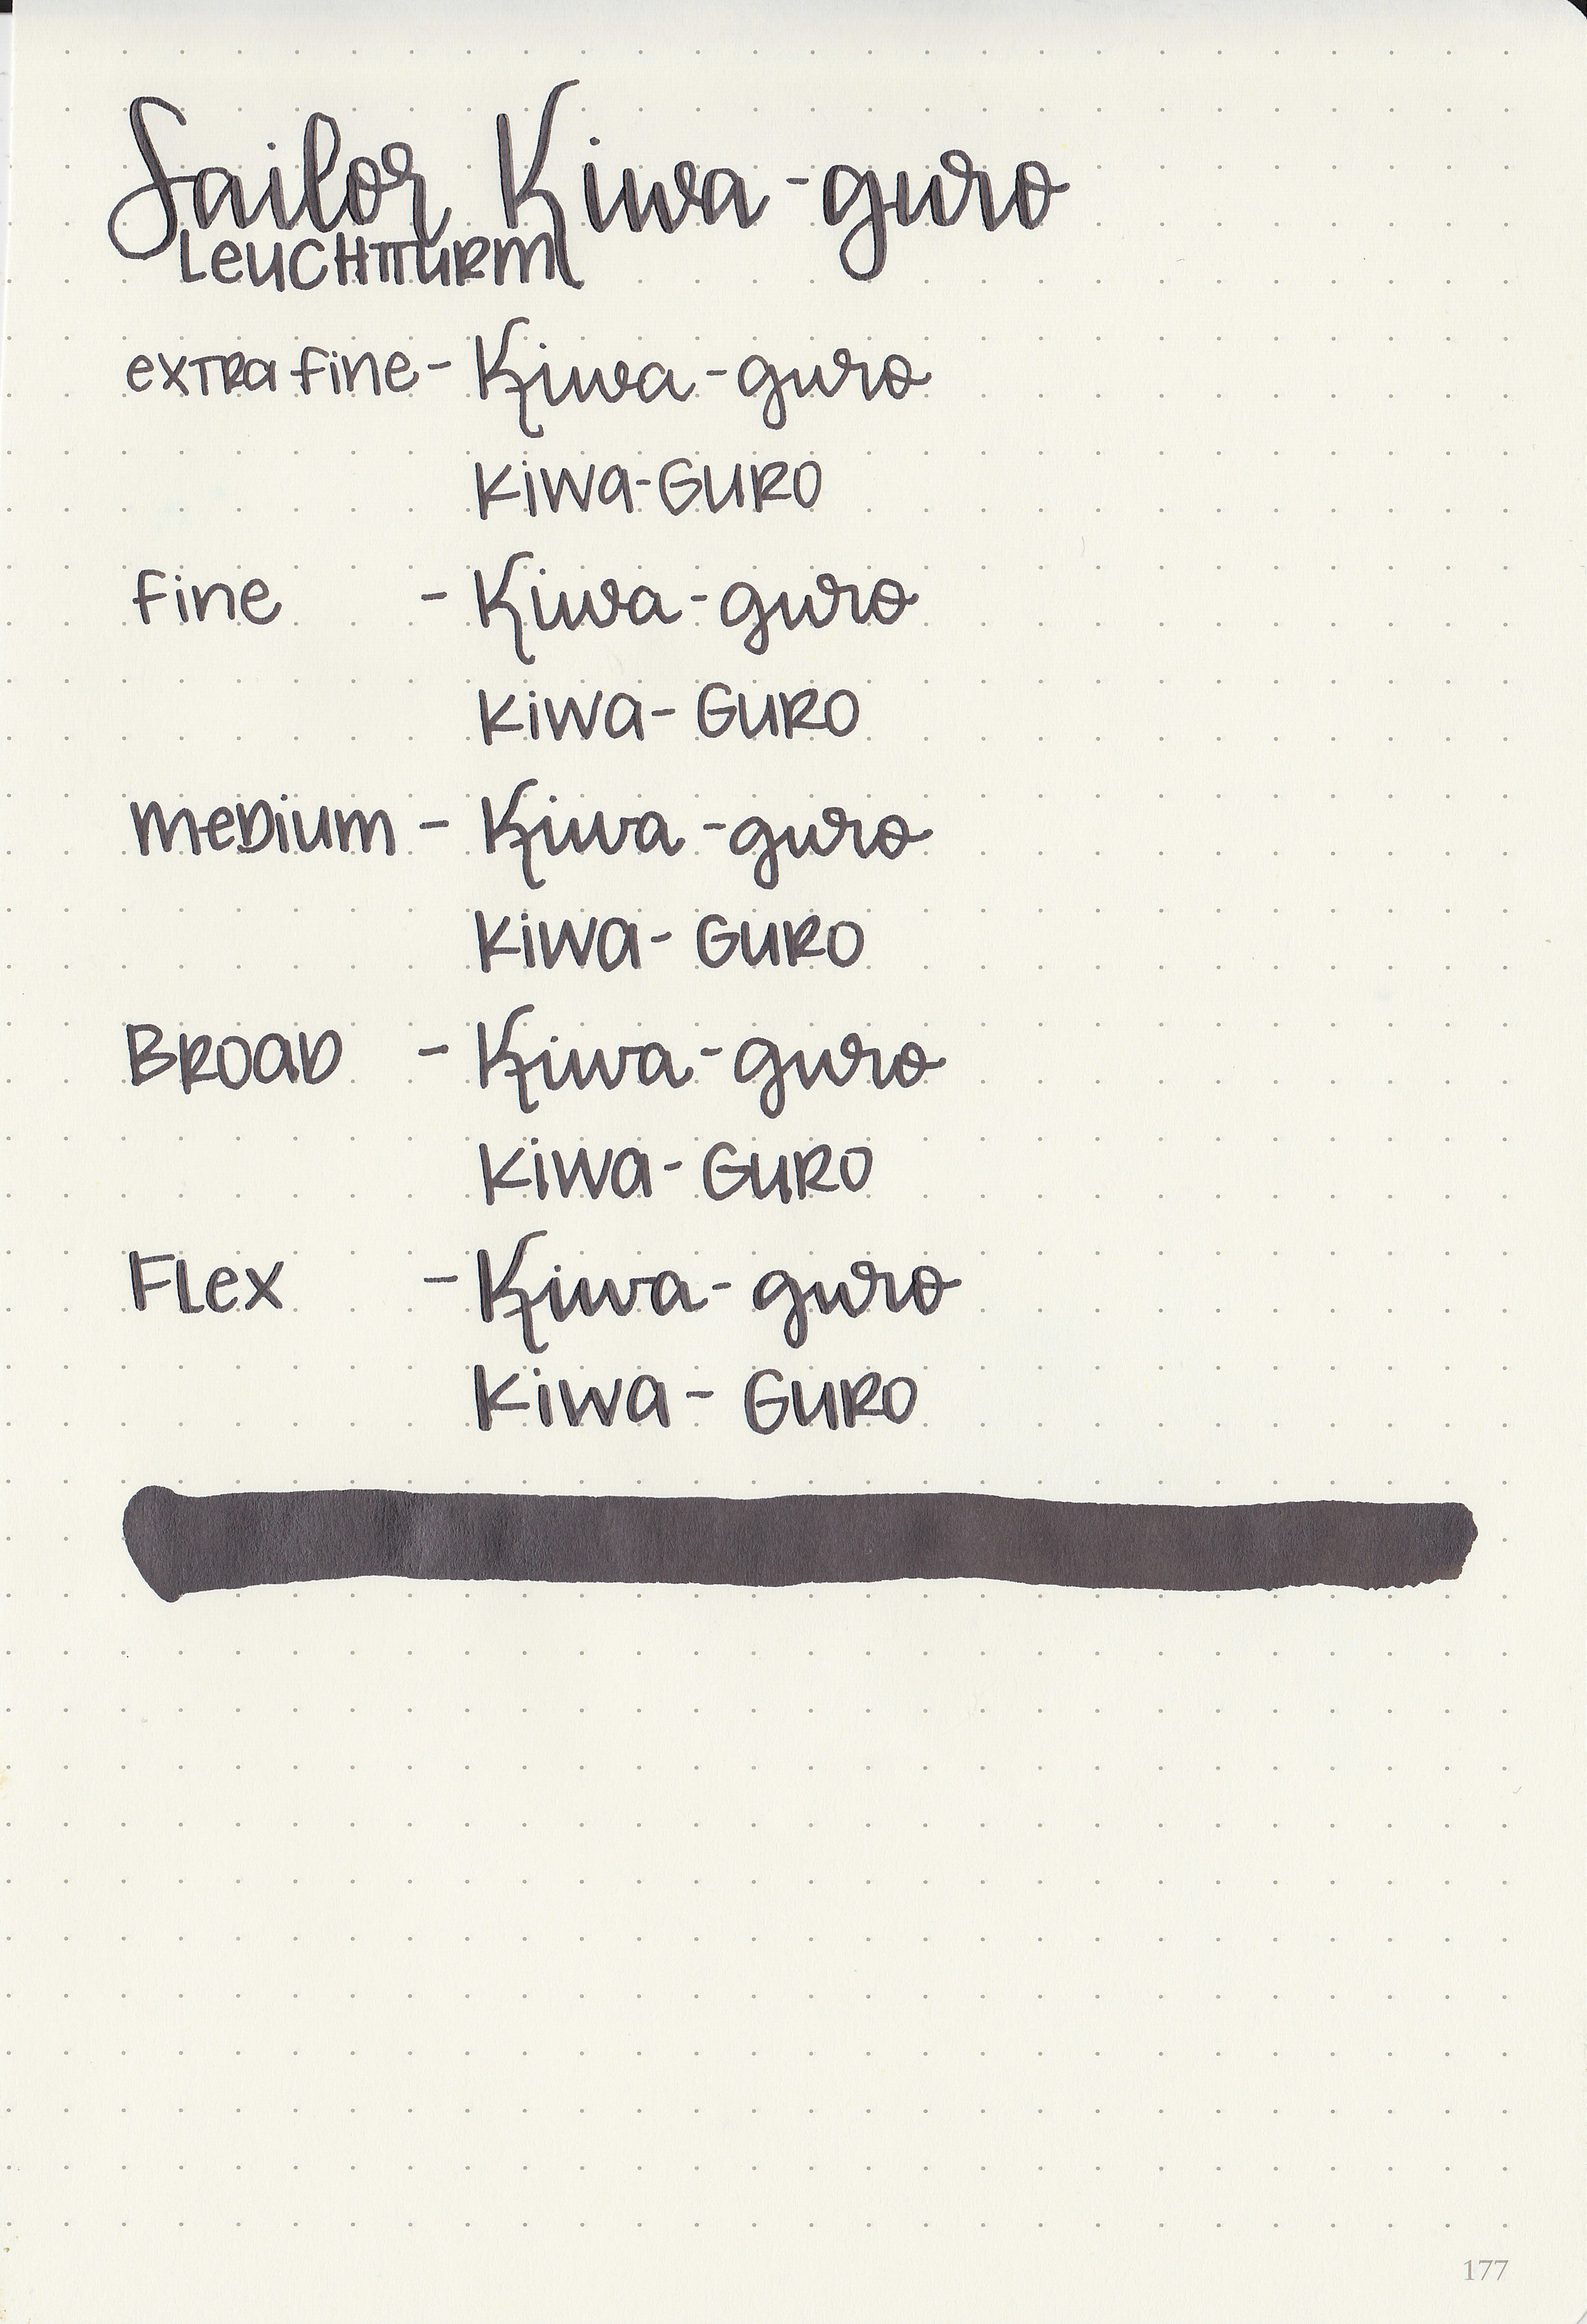 Sailor Kiwa-guro
LEUCHTTURM
extra fine - Kiwa-guro
KIWA-GURO
fine - Kiwa-guro
KIWA-GURO
medium - Kiwa-guro
KIWA-GURO
BROAD - Kiwa-guro
KIWA-GURO
FLEX - Kiwa-guro
KIWA-GURO
177